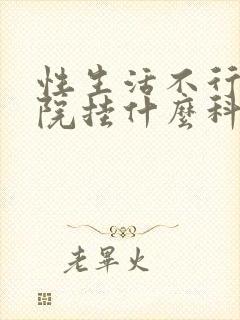 性生活不行
院挂什麼科
老畢火